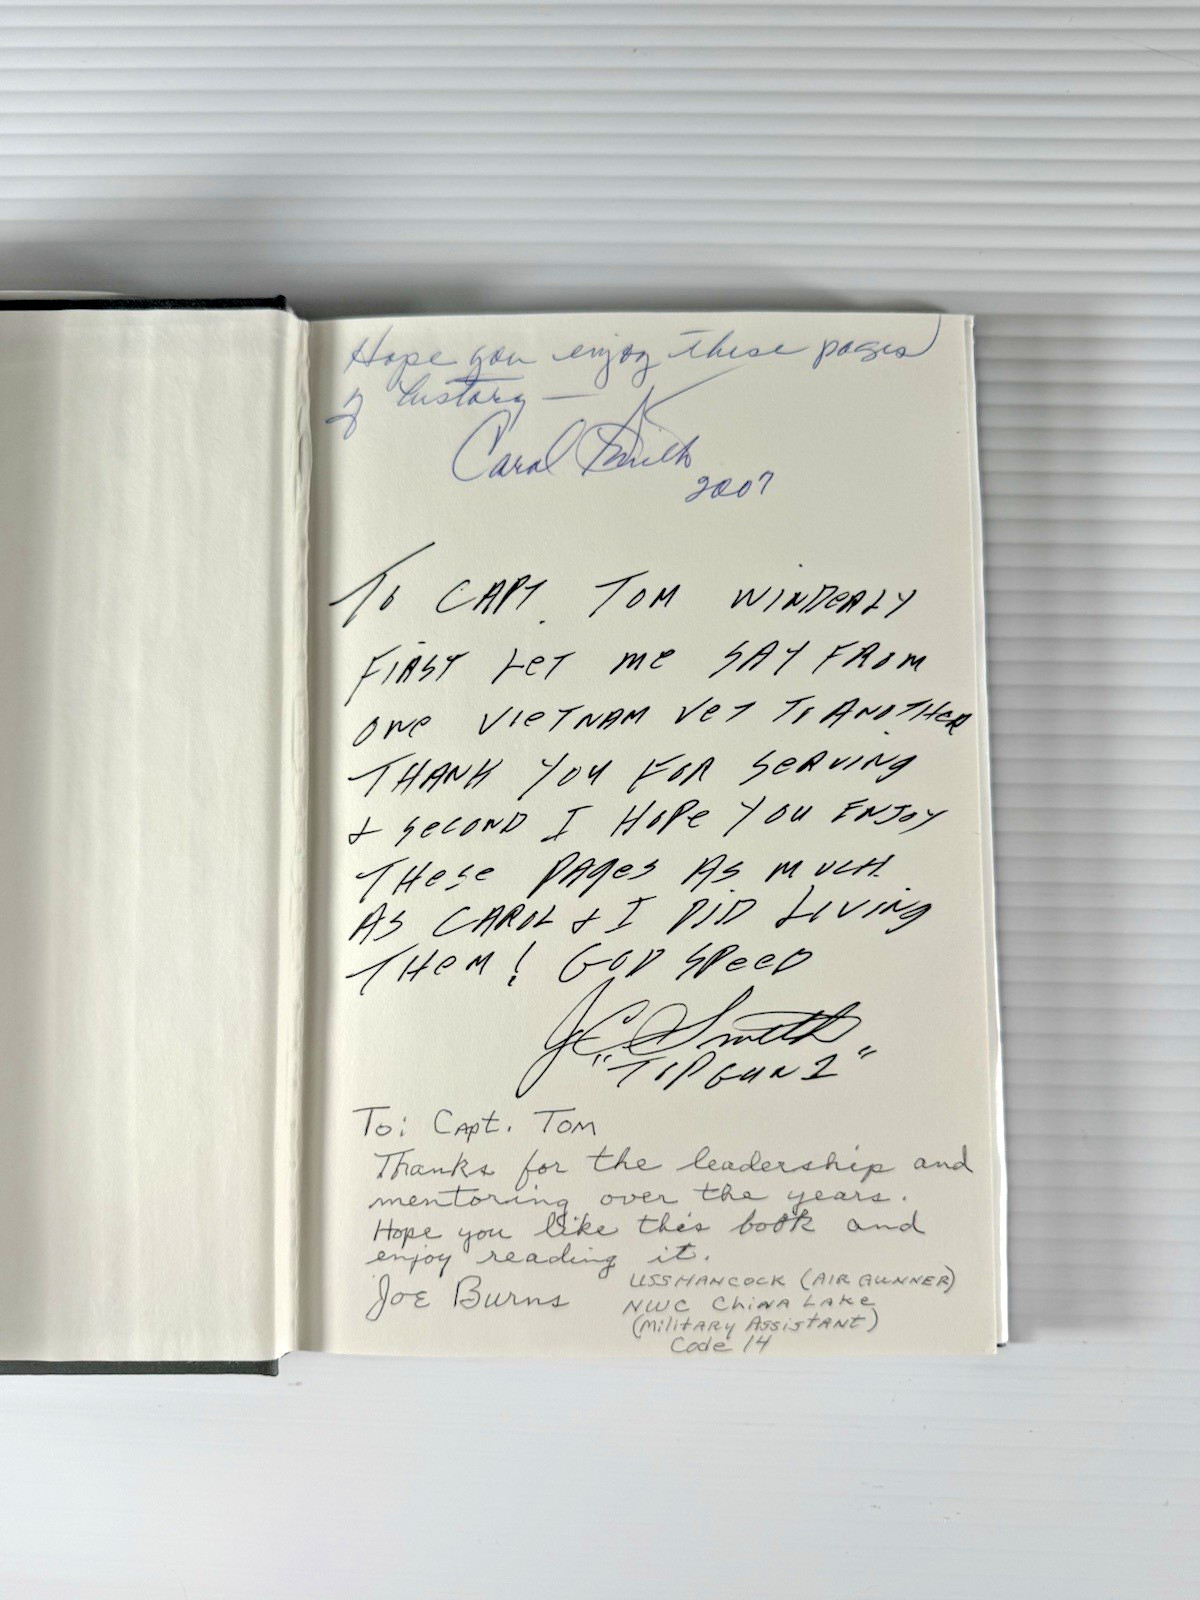 Hope you enjoy these pages
of history —
Carol Smith
2007
To CAPT. TOM WINDERLY
FIRST LET me SAY FROM
one VIETNAM VET To ANOTHER
THANK YOU FOR SERVING
& SECOND I HOPE YOU ENJOY
THESE PAGES AS MUCH
AS CAROL & I DID LIVING
THEM! GOD SPEED
JC Smith
"TOPGUN 1"
To: Capt. Tom
Thanks for the leadership and
mentoring over the years.
Hope you like this book and
enjoy reading it.
Joe Burns
USS HANCOCK (AIR GUNNER)
NWC CHINA LAKE
(Military Assistant)
Code 14